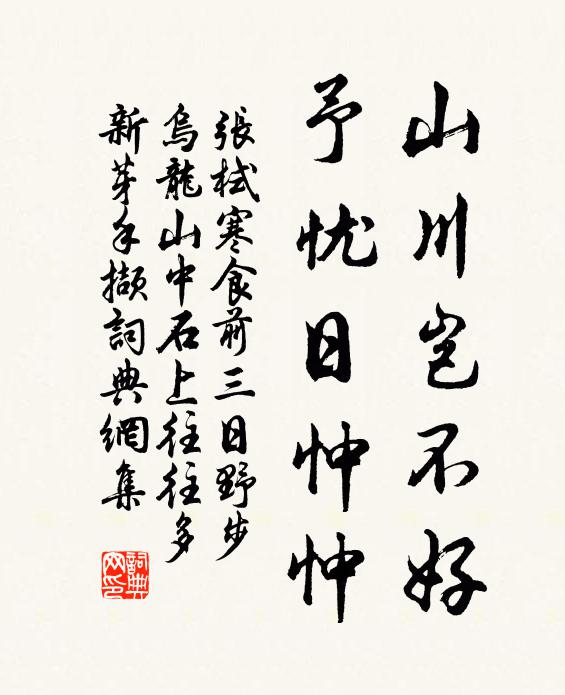 山川岂不好
予忧日忡忡
張栻寒食前三日野步
烏龍山中石上往往多
新芽手擷詞典網集
詞典网印